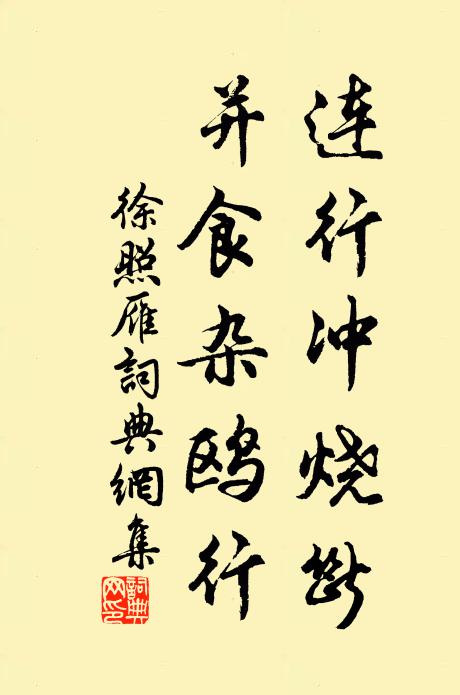 连行冲烧断
并食杂鸥行
徐照雁詞典網集
詞典網印